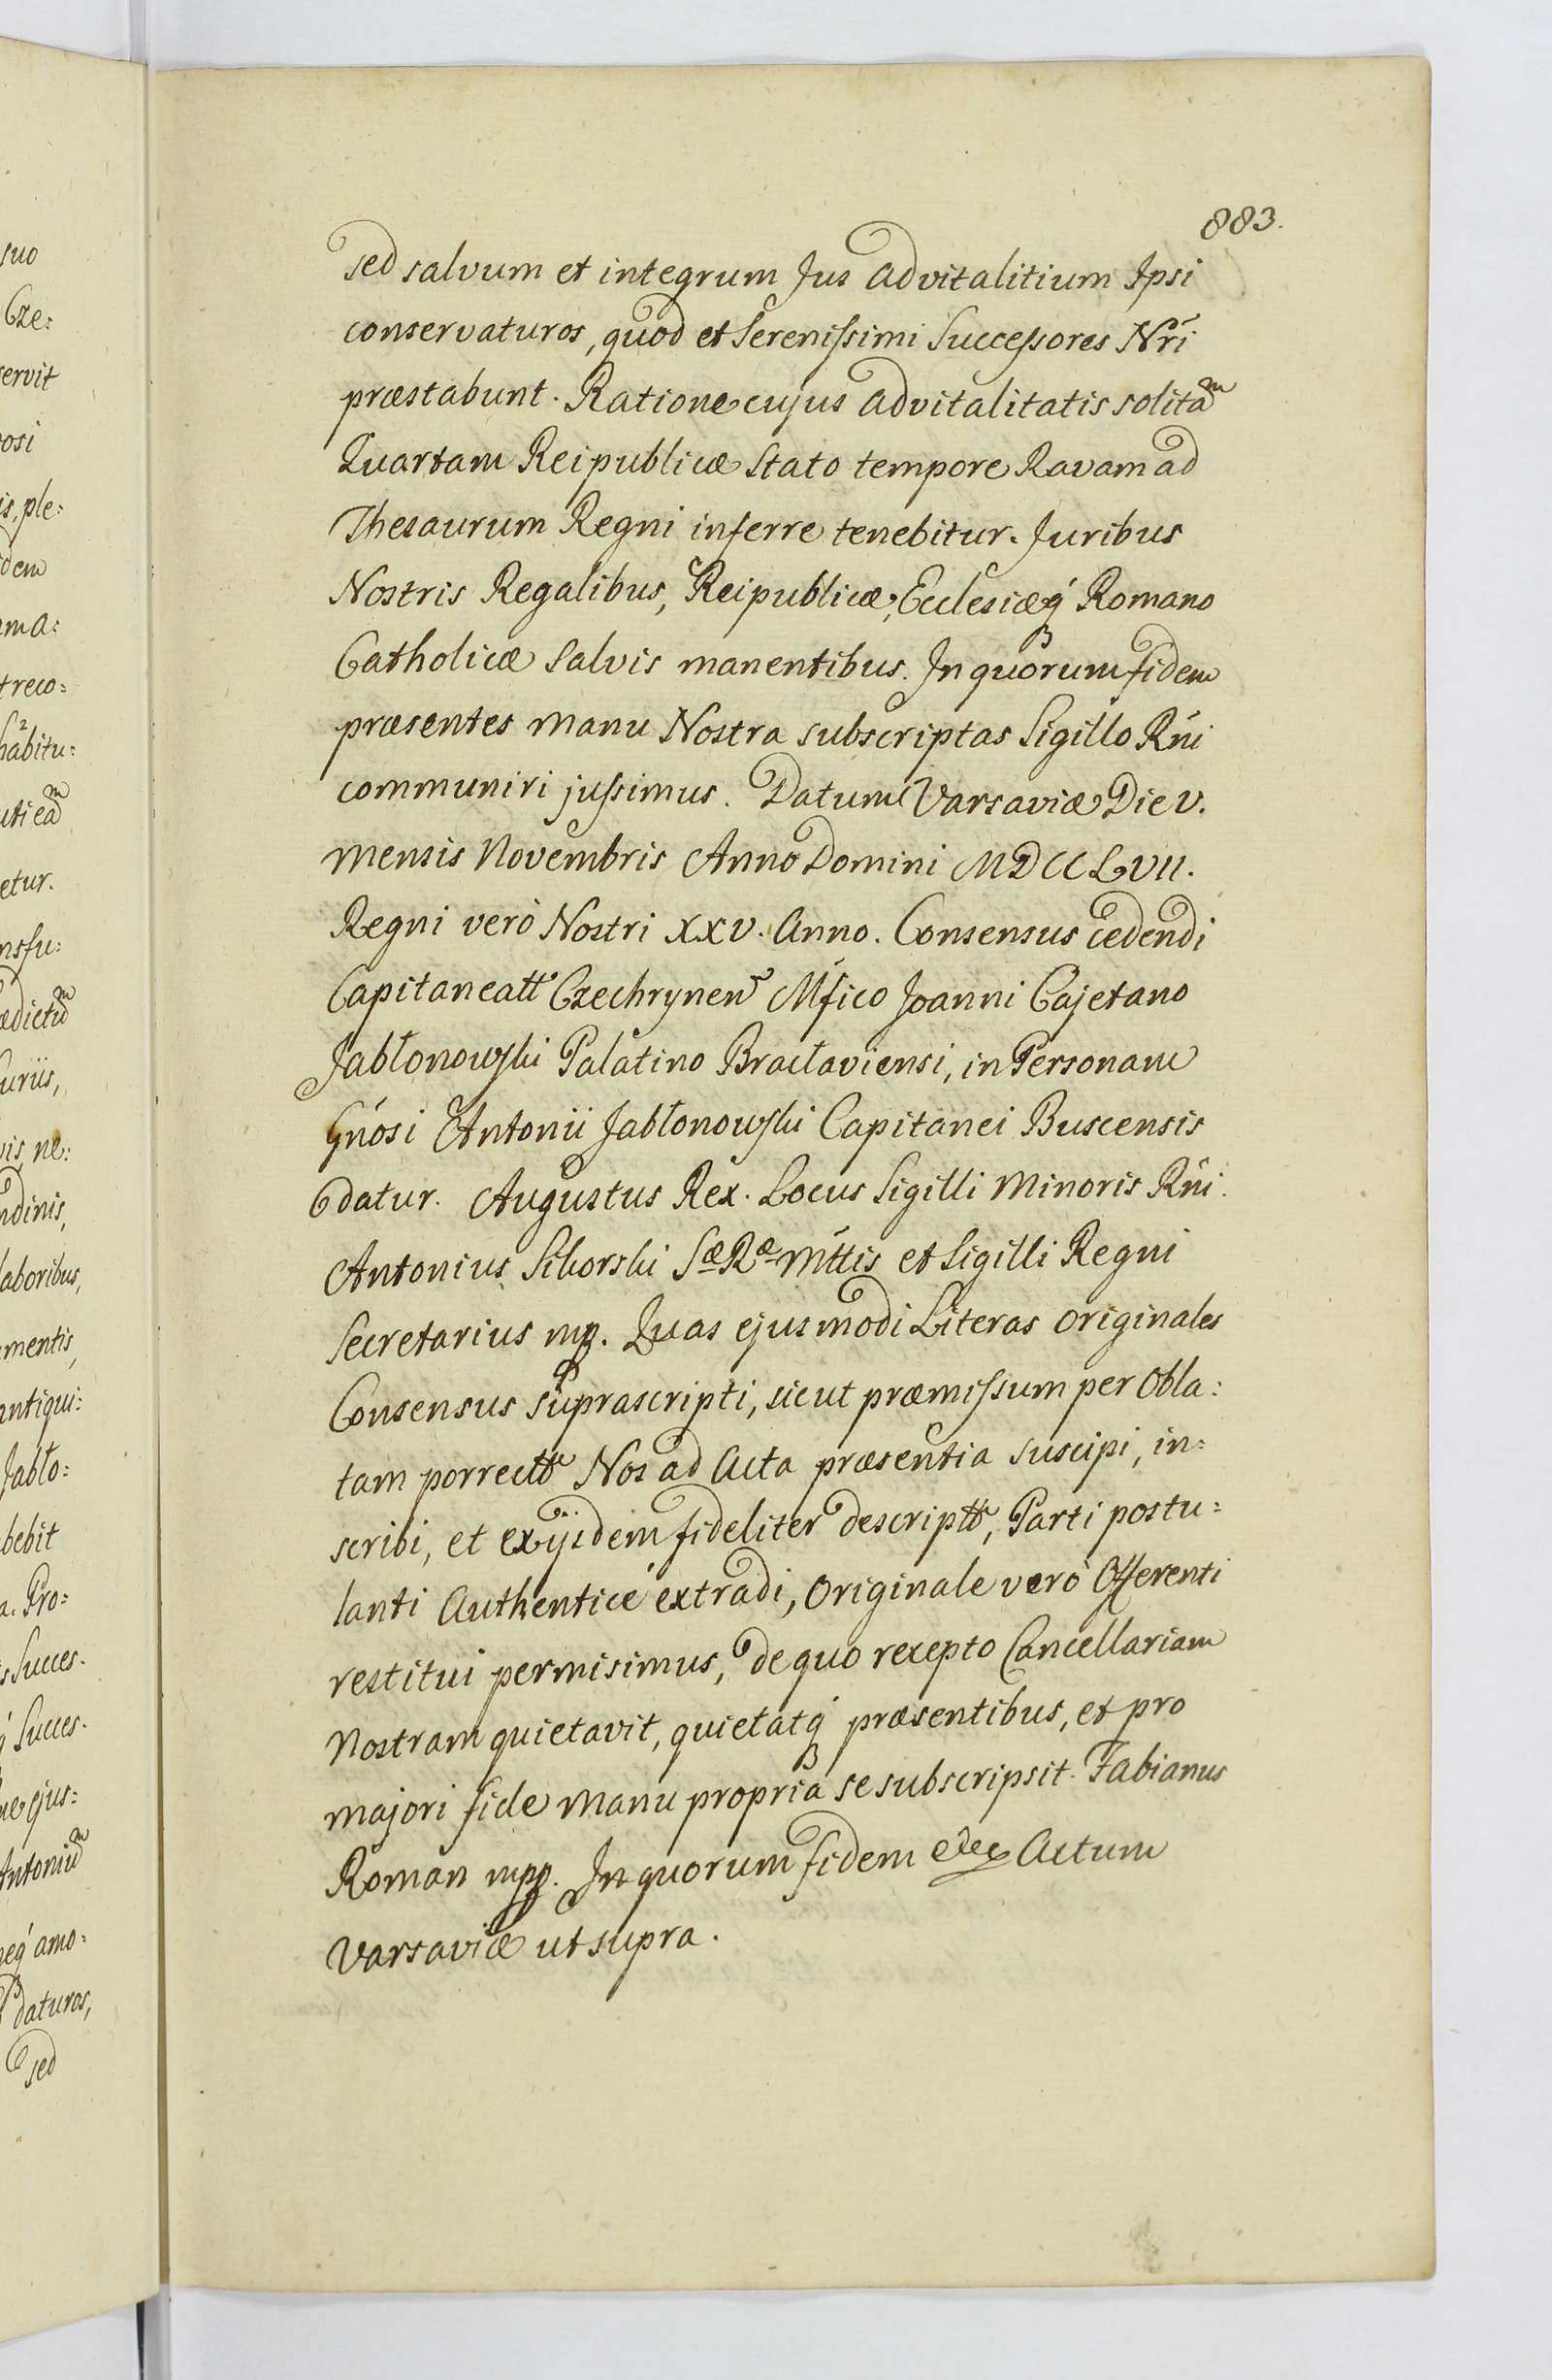 883.
sed salvum et integrum Jus advitalitium Ipsi
conservaturos, quod et Serenissimi Successores Nri
præstabunt. Ratione cujus advitalitatis solitam
Quartam Reipublicæ Stato tempore Ravam ad
Thesaurum Regni inferre tenebitur. Juribus
Nostris Regalibus, Reipublicæ, Ecclesiæq Romano
Catholicæ Salvis manentibus. In quorum fidem
præsentes manu Nostra subscriptas Sigillo Rni
communiri jussimus. Datum Varsaviæ Die V.
mensis Novembris Anno Domini MDCCLVII.
Regni verò Nostri XXV. Anno. Consensus cedendi
Capitaneatt Czechrynen Mfico Joanni Cajetano
Jabłonowski Palatino Bracłaviensi, in Personam
Gnosi Antonii Jabłonowski Capitanei Buscensis
datur. Augustus Rex. Locus Sigilli Minoris Rni.
Antonius Sikorski Sæ Ræ Mttis et Sigilli Regni
Secretarius mp. Quas ejusmodi Literas originales
Consensus suprascripti, sicut præmissum per Obla:
tam porrectt Nos ad Acta præsentia suscipi, in:
scribi, et ex ijsdem fideliter descriptt, Parti postu:
lanti Authenticè extradi, Originale verò Offerenti
restitui permisimus, de quo recepto Cancellariam
Nostram quietavit, quietatq præsentibus, et pro
majori fide manu propria se subscripsit. Fabianus
Roman mpp. In quorum fidem etc Actum
Varsaviæ ut supra.
suo
Cze:
servit
osi
is, ple:
dem
ma:
treco:
habitu:
uti eam
etur.
nsfu:
ædictum
uriis,
vis ne:
ndinis,
laboribus,
mentis,
antiqui:
Jabło:
bebit
a. Pro:
s Succes.
q Succes.
ejus:
Antonium
eq amo:
daturos,
sed